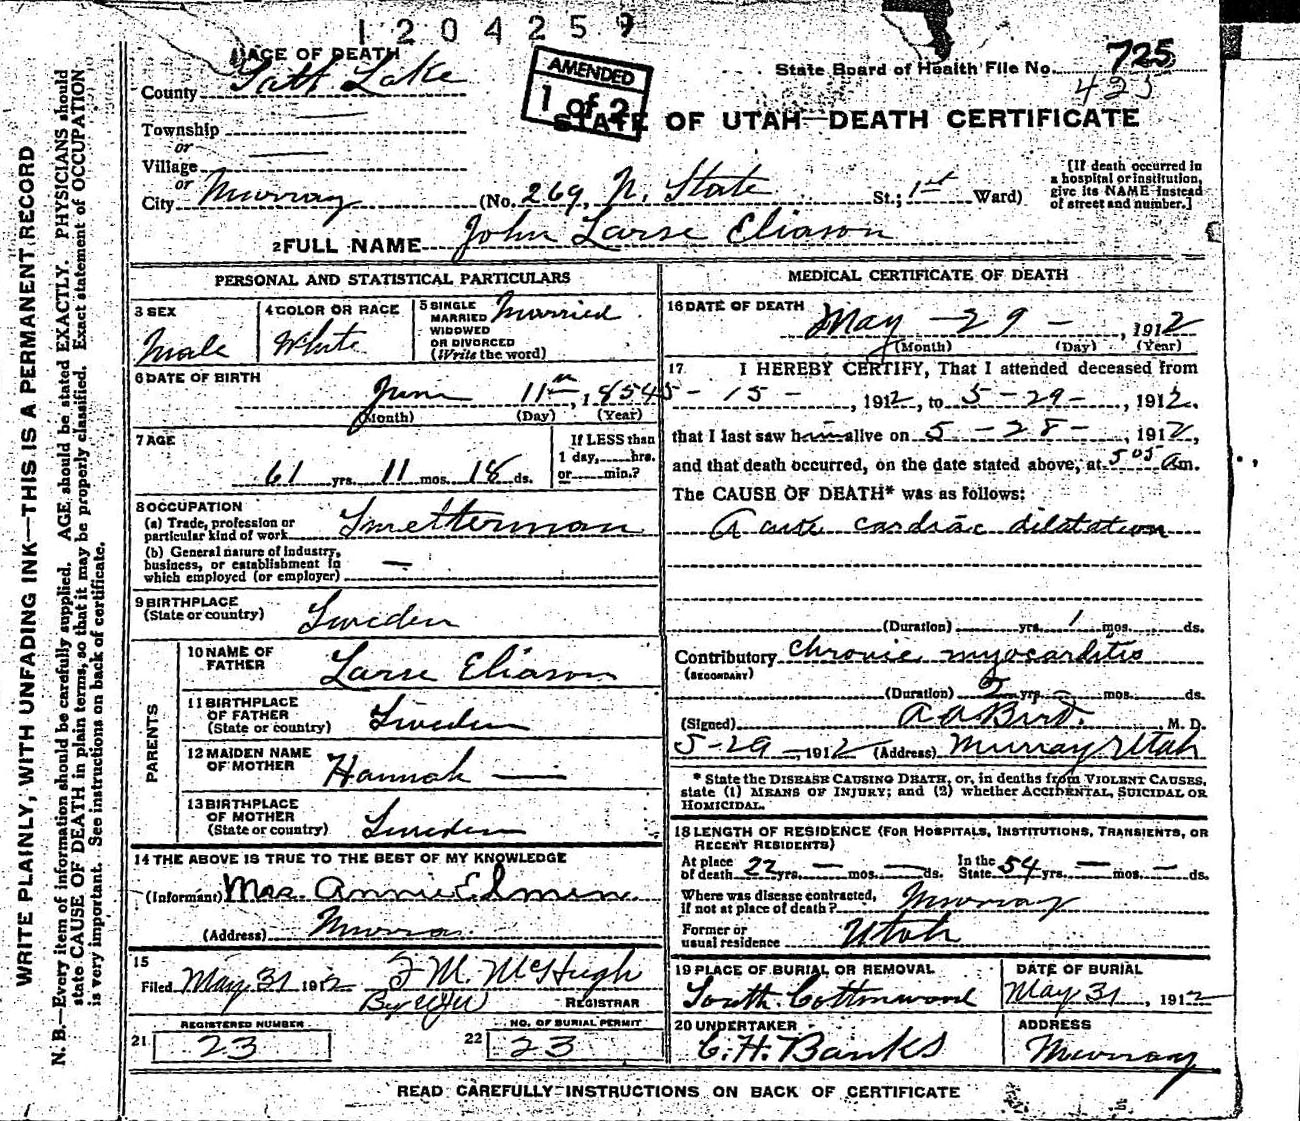 1204259
PLACE OF DEATH
County Salt Lake
AMENDED
1 of 2
State Board of Health File No. 725
425
STATE OF UTAH—DEATH CERTIFICATE
Township
or
Village
or
City Murray (No. 269, N. State St.; 1st Ward)
[If death occurred in
a hospital or institution,
give its NAME instead
of street and number.]
2 FULL NAME John Larse Eliason
PERSONAL AND STATISTICAL PARTICULARS
3 SEX
Male
4 COLOR OR RACE
White
5 SINGLE
MARRIED
WIDOWED
OR DIVORCED
(Write the word)
Married
6 DATE OF BIRTH
June 11th, 1854
(Month) (Day) (Year)
7 AGE
61 yrs. 11 mos. 18 ds.
If LESS than
1 day, hrs.
or min.?
8 OCCUPATION
(a) Trade, profession or
particular kind of work Smelterman
(b) General nature of Industry,
business, or establishment in
which employed (or employer) —
9 BIRTHPLACE
(State or country) Sweden
PARENTS
10 NAME OF
FATHER Larse Eliason
11 BIRTHPLACE
OF FATHER
(State or country) Sweden
12 MAIDEN NAME
OF MOTHER Hannah —
13 BIRTHPLACE
OF MOTHER
(State or country) Sweden
14 THE ABOVE IS TRUE TO THE BEST OF MY KNOWLEDGE
(Informant) Mrs. Annie Elmen
(Address) Murray
15
Filed May 31 1912 F M. McHugh
By
REGISTRAR
REGISTERED NUMBER
21 23
NO. OF BURIAL PERMIT
22 23
MEDICAL CERTIFICATE OF DEATH
16 DATE OF DEATH
May - 29 - , 1912
(Month) (Day) (Year)
17 I HEREBY CERTIFY, That I attended deceased from
5 - 15 - , 1912, to 5 - 29 - , 1912.
that I last saw him alive on 5 - 28 - , 1912,
and that death occurred, on the date stated above, at 5 05 Am.
The CAUSE OF DEATH* was as follows:
Acute cardiac dilatation
(Duration) yrs. 1 mos. ds.
Contributory Chronic myocarditis
(SECONDARY)
(Duration) 2 yrs. - mos. ds.
(Signed) A A Bird. M. D.
5-29-, 1912 (Address) Murray Utah
* State the DISEASE CAUSING DEATH, or, in deaths from VIOLENT CAUSES,
state (1) MEANS OF INJURY; and (2) whether ACCIDENTAL, SUICIDAL OR
HOMICIDAL.
18 LENGTH OF RESIDENCE (FOR HOSPITALS, INSTITUTIONS, TRANSIENTS, OR
RECENT RESIDENTS)
At place
of death 22 yrs. — mos. — ds.
In the
State 54 yrs. — mos. — ds.
Where was disease contracted,
if not at place of death? Murray
Former or
usual residence Utah
19 PLACE OF BURIAL OR REMOVAL
South Cottonwood
DATE OF BURIAL
May 31, 1912
20 UNDERTAKER
C. H. Banks
ADDRESS
Murray
READ CAREFULLY INSTRUCTIONS ON BACK OF CERTIFICATE
WRITE PLAINLY, WITH UNFADING INK—THIS IS A PERMANENT RECORD
N. B.—Every item of information should be carefully supplied. AGE should be stated EXACTLY. PHYSICIANS should
state CAUSE OF DEATH in plain terms, so that it may be properly classified. Exact statement of OCCUPATION
is very important. See instructions on back of certificate.